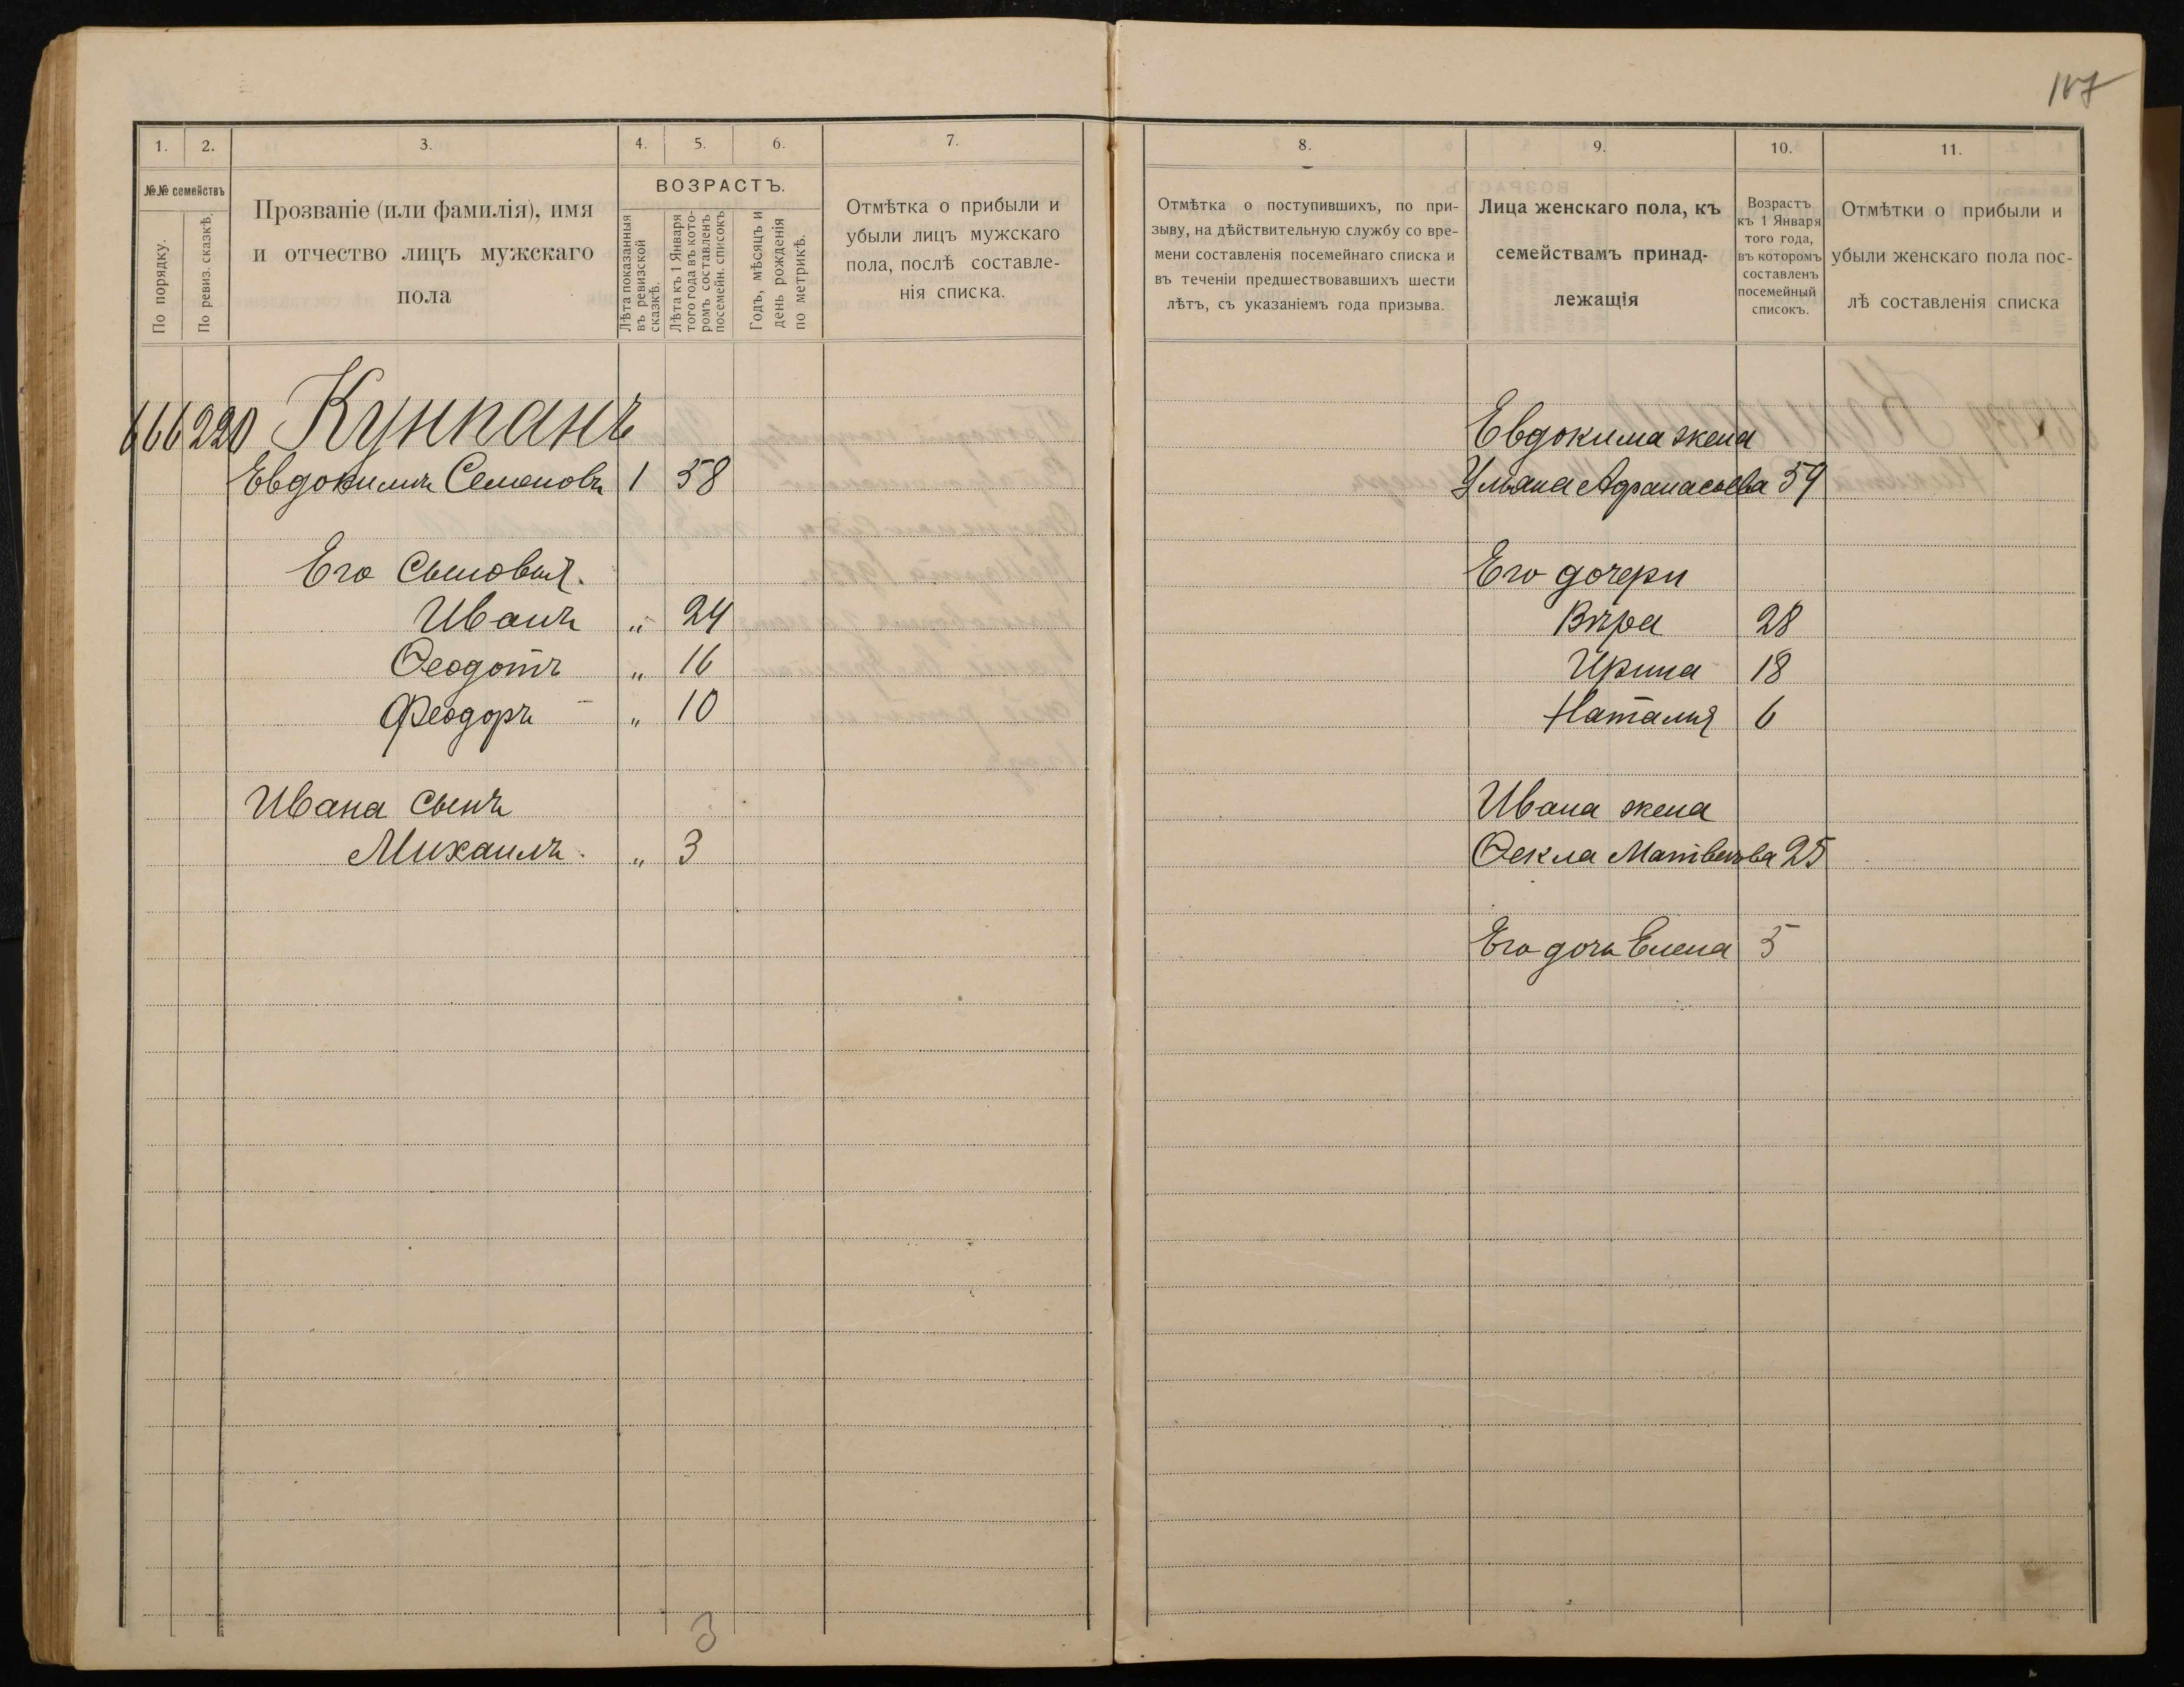 107
1.
2.
3.
4.
5.
6.
7.
№№ семействъ
По порядку.
По ревиз. сказкѣ.
Прозваніе (или фамилія), имя
и отчество лицъ мужскаго
пола
ВОЗРАСТЪ.
Лѣта показанныя
въ ревизской
сказкѣ.
Лѣта къ 1 Января
того года въ кото-
ромъ составленъ
посемейн. списокъ
Годъ, мѣсяцъ и
день рожденія
по метрикѣ.
Отмѣтка о прибыли и
убыли лицъ мужскаго
пола, послѣ составле-
нія списка.
666 220 Кунпанъ
Евдокимъ Семеновъ 1 58
Его Сыновья.
Иванъ „ 24
Ѳеодотъ „ 16
Феодоръ „ 10
Ивана Сынъ
Михаилъ. „ 3
3
8.
9.
10.
11.
Отмѣтка о поступившихъ, по при-
зыву, на дѣйствительную службу со вре-
мени составленія посемейнаго списка и
въ теченіи предшествовавшихъ шести
лѣтъ, съ указаніемъ года призыва.
Лица женскаго пола, къ
семействамъ принад-
лежащія
Возрастъ
къ 1 Января
того года,
въ которомъ
составленъ
посемейный
списокъ.
Отмѣтки о прибыли и
убыли женскаго пола пос-
лѣ составленія списка
Евдокима жена
Ульяна Афанасьева 54
Его дочери
Вѣра 28
Ирина 18
Наталия 6
Ивана жена
Ѳекла Матвеева 25
Его дочь Елена 5